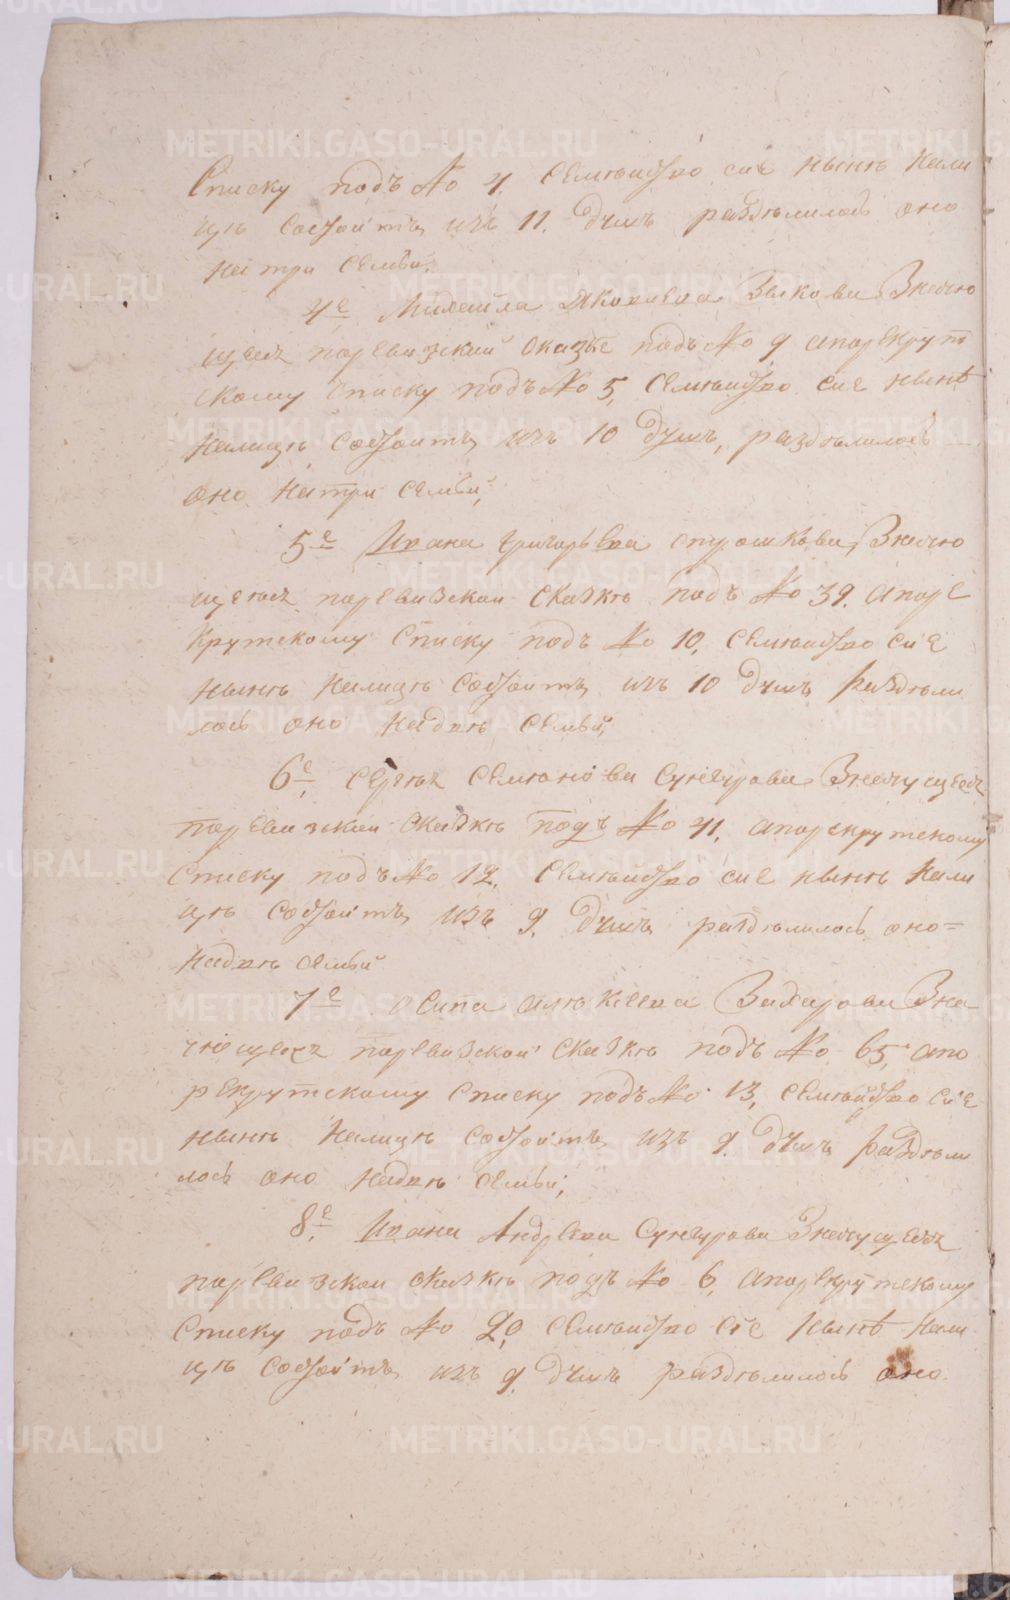 Списку подъ № 4. Семѣйство сие нынѣ Нали
цѣ Состоитъ изъ 11. душъ раздѣлилось оно
На три Семьи,
4е Михайла Яковлева Зыкова Значю
щеся поревизской сказке подъ № 9 апорекрут
скому Списку подъ № 5, Семѣйство сие нынѣ
Налицѣ Состоитъ изъ 10 душъ, раздѣлилось
оно На три семьи,
5е Ивана Григорьева Значю
щеюся поревизской Сказкѣ подъ № 39. апоре
крутскому Списку подъ № 10, Семѣйство сие
нынѣ Налицѣ Состоитъ изъ 10 душъ раздѣли
лось оно На двѣ Семьи,
6е, Сергѣя Семѣнова Сунгурова Значущеся
поревизской Сказкѣ подъ № 41, апорекрутскому
Списку подъ № 12, Семѣйство сие нынѣ Нали
цѣ Состоитъ изъ 9. душъ раздѣлилось оно=
На двѣ Семьи
7е Осипа Алѣксеева Захарова Зна
чющеся поревизской Сказкѣ подъ № 65, апо
рекрутскому Списку подъ № 13, Семѣйство Сие
нынѣ Налицѣ Состоитъ изъ 9. душъ раздѣли
лось оно На двѣ Семьи,
8е, Ивана Андрѣева Сунгурова Значущеся
поревизской Сказкѣ подъ № 6, апорекрутскому
Списку подъ № 20, Семѣйство Сие Нынѣ Нали
цѣ Состоитъ изъ 9. душъ раздѣлилось оно
METRIKI.GASO-URAL.RU